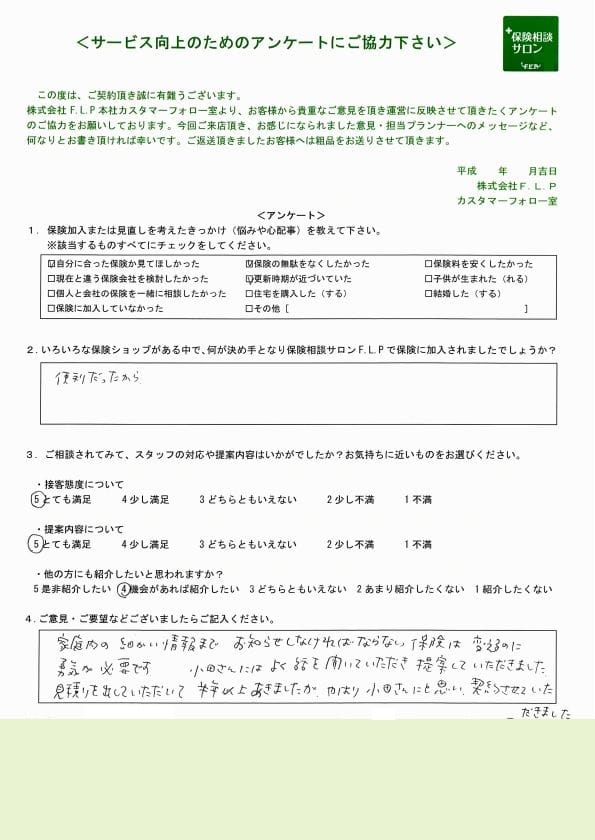 ＜サービス向上のためのアンケートにご協力下さい＞
保険相談
サロン
F.L.P
この度は、ご契約頂き誠に有難うございます。
株式会社F.L.P本社カスタマーフォロー室より、お客様から貴重なご意見を頂き運営に反映させて頂きたくアンケート
のご協力をお願いしております。今回ご来店頂き、お感じになられました意見・担当プランナーへのメッセージなど、
何なりとお書き頂ければ幸いです。ご返送頂きましたお客様へは粗品をお送りさせて頂きます。
平成　年　月吉日
株式会社F.L.P
カスタマーフォロー室
＜アンケート＞
1．保険加入または見直しを考えたきっかけ（悩みや心配事）を教えて下さい。
※該当するものすべてにチェックをしてください。
☑自分に合った保険か見てほしかった ☑保険の無駄をなくしたかった □保険料を安くしたかった
□現在と違う保険会社を検討したかった ☑更新時期が近づいていた □子供が生まれた（れる）
□個人と会社の保険を一緒に相談したかった □住宅を購入した（する） □結婚した（する）
□保険に加入していなかった □その他［　］
2．いろいろな保険ショップがある中で、何が決め手となり保険相談サロンF.L.Pで保険に加入されましたでしょうか？
便利だったから
3．ご相談されてみて、スタッフの対応や提案内容はいかがでしたか？お気持ちに近いものをお選びください。
・接客態度について
5とても満足 4少し満足 3どちらともいえない 2少し不満 1不満
・提案内容について
5とても満足 4少し満足 3どちらともいえない 2少し不満 1不満
・他の方にも紹介したいと思われますか？
5是非紹介したい 4機会があれば紹介したい 3どちらともいえない 2あまり紹介したくない 1紹介したくない
4．ご意見・ご要望などございましたらご記入ください。
家庭内の細かい情報まで お知らせしなければならない保険は 変えるのに
勇気が必要です 小田さんには よく話を聞いていただき 提案していただきました
見積りを出していただいて 半年以上あきましたが、やはり小田さんにと思い、契約させていた
だきました